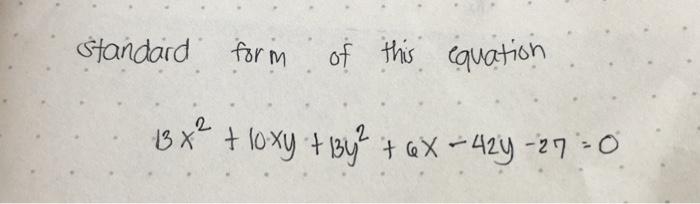 standard form of this equation
13x² + 10xy + 13y² + 6x - 42y - 27 = 0